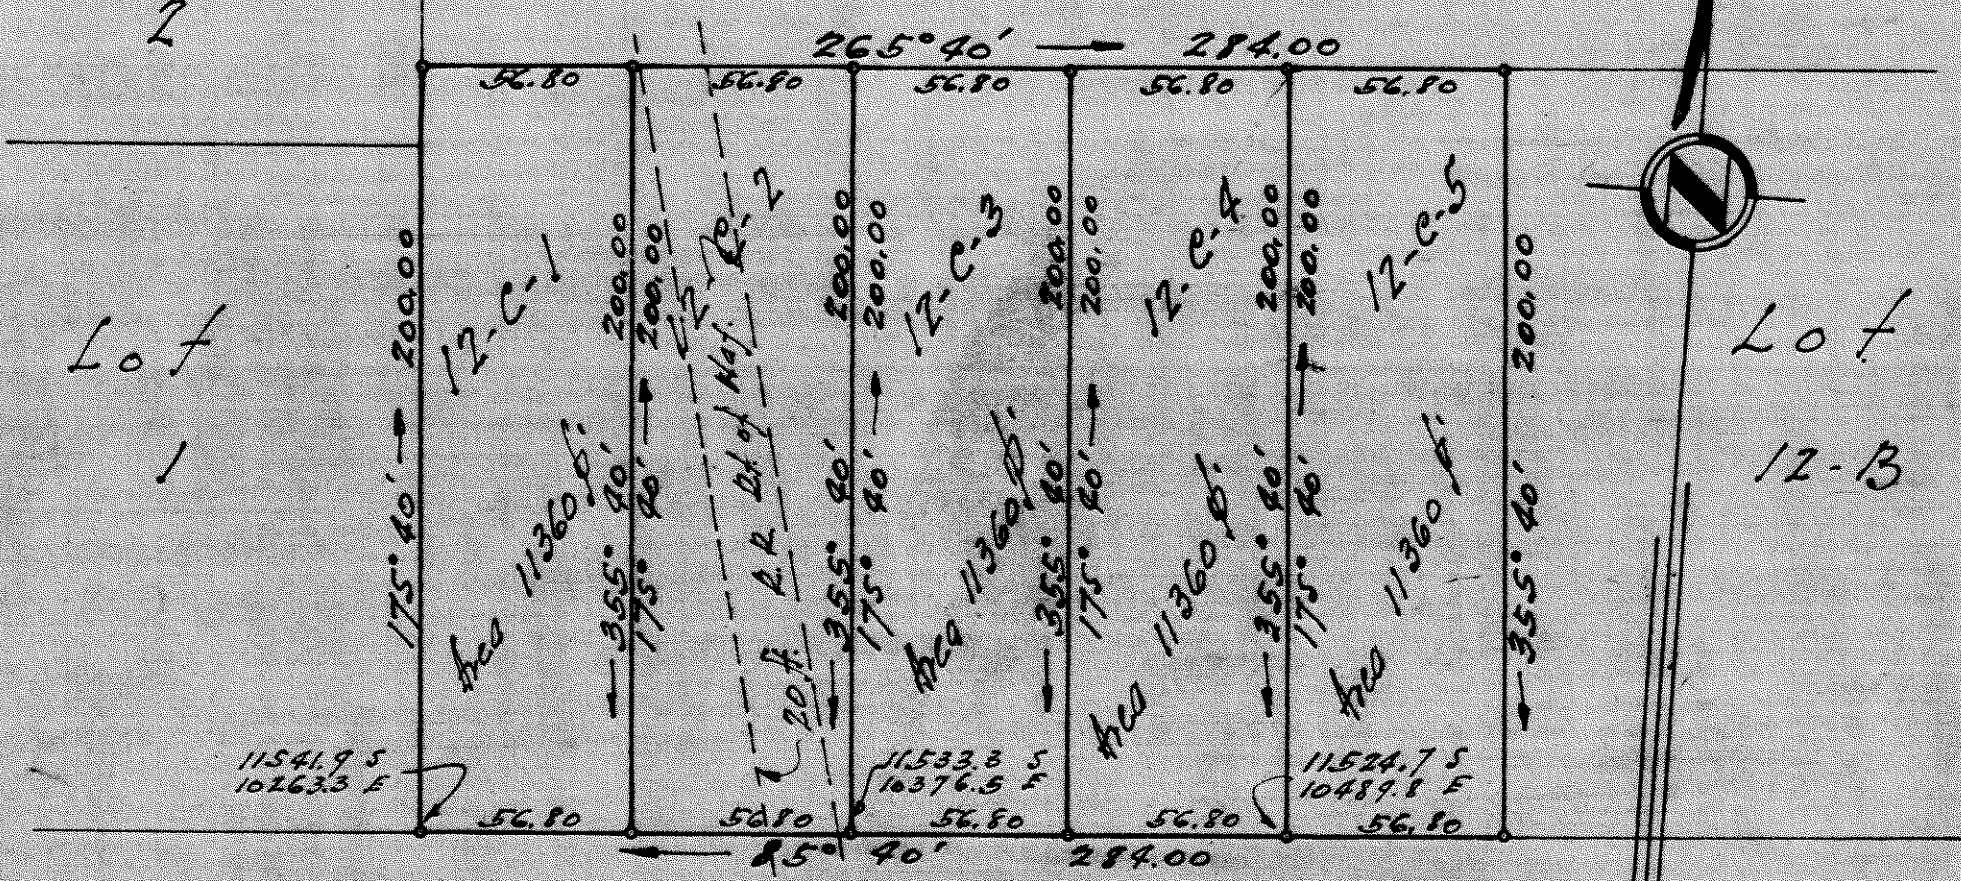 2
265°40' 284.00
56.80
56.80
56.80
56.80
56.80
Lot
1
175° 40' 200.00
12-C-1
Area 11360
355° 40' 200.00
175° 40' 200.00
12-C-2
20 ft. R.R. Rt. of Way.
355° 40' 200.00
175° 40' 200.00
12-C-3
Area 11360
355° 40' 200.00
175° 40' 200.00
12-C-4
Area 11360
355° 40' 200.00
175° 40' 200.00
12-C-5
Area 11360
355° 40' 200.00
N
Lot
12-B
11541.9 S
10263.3 E
11533.3 S
10376.5 E
11524.7 S
10489.8 E
56.80
56.80
56.80
56.80
56.80
85° 40' 284.00